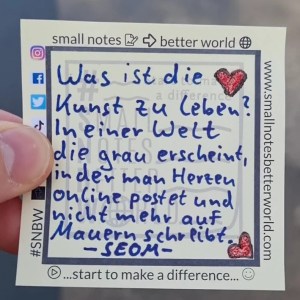 small notes better world
Was ist die
Kunst zu leben?
In einer Welt
die grau erscheint,
in der man Herzen
online postet und
nicht mehr auf
Mauern schreibt.
-SEOM-
...start to make a difference...
#SNBW
www.smallnotesbetterworld.com